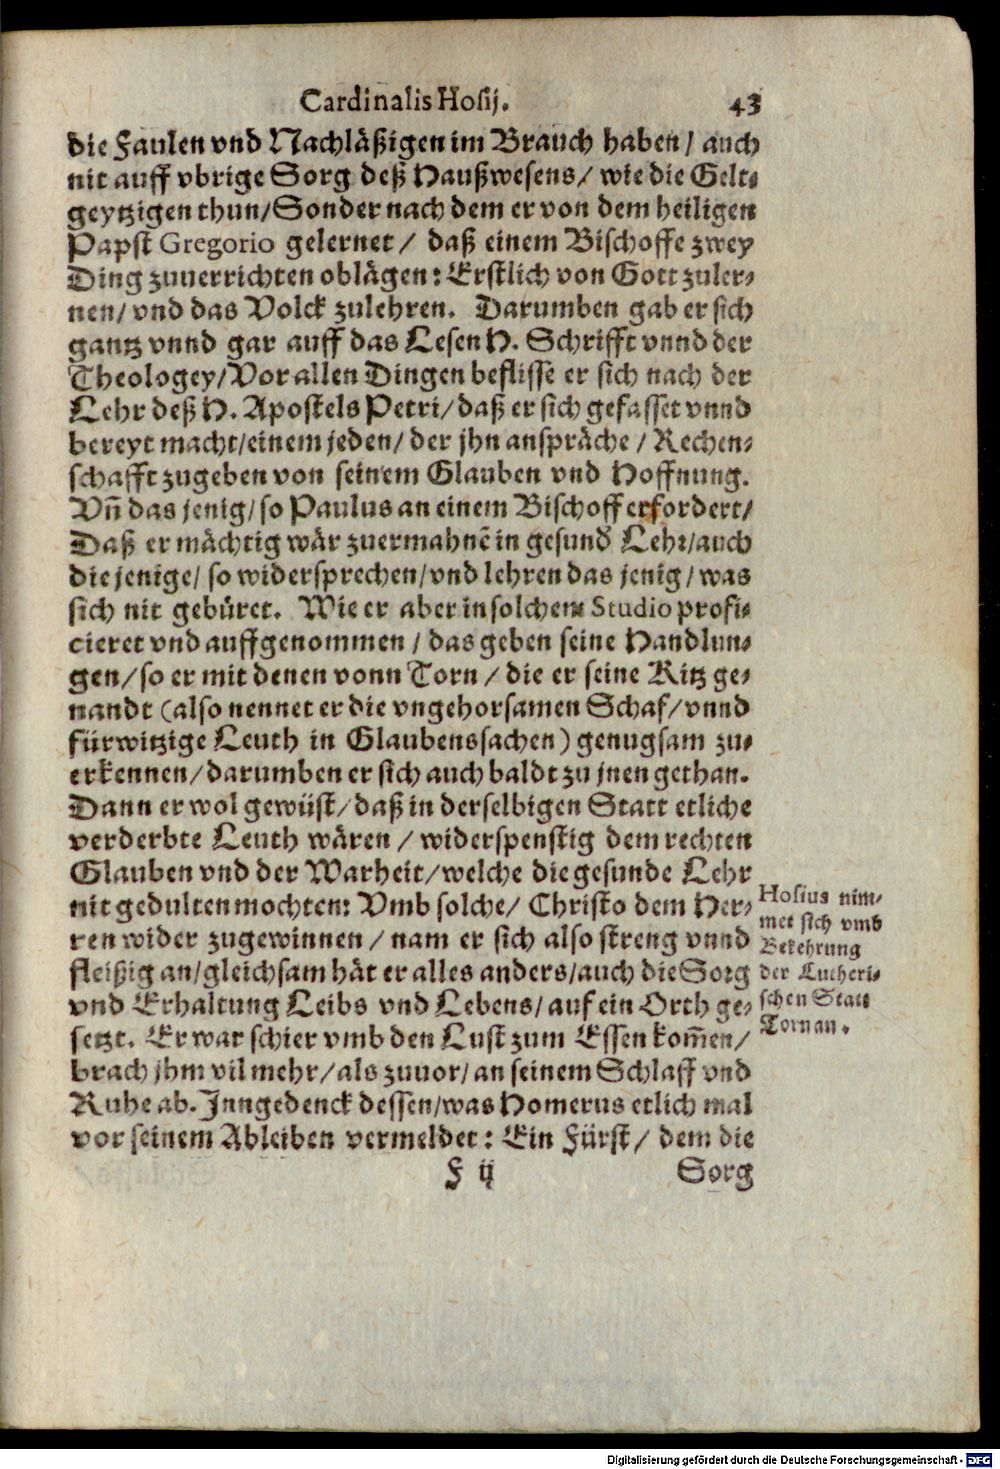 Cardinalis Hosij. 43
die Faulen vnd Nachläßigen im Brauch haben / auch
nit auff vbrige Sorg deß Haußwesens / wie die Gelt-
geytzigen thun / Sonder nach dem er von dem heiligen
Papst Gregorio gelernet / daß einem Bischoffe zwey
Ding zuuerrichten oblägen: Erstlich von Gott zuler-
nen / vnd das Volck zulehren. Darumben gab er sich
gantz vnnd gar auff das Lesen H. Schrifft vnnd der
Theologey / Vor allen Dingen beflisse er sich nach der
Lehr deß H. Apostels Petri / daß er sich gefasset vnnd
bereyt macht / einem jeden / der jhn anspräche / Rechen-
schafft zugeben von seinem Glauben vnd Hoffnung.
Vñ das jenig / so Paulus an einem Bischoff erfordert /
Daß er mächtig wär zuermahnẽ in gesund Lehr / auch
die jenige / so widersprechen / vnd lehren das jenig / was
sich nit gebüret. Wie er aber in solchem Studio profi-
cieret vnd auffgenommen / das geben seine Handlun-
gen / so er mit denen vonn Torn / die er seine Kitz ge-
nandt (also nennet er die vngehorsamen Schaf / vnnd
fürwitzige Leuth in Glaubenssachen) genugsam zu-
erkennen / darumben er sich auch baldt zu jnen gethan.
Dann er wol gewüst / daß in derselbigen Statt etliche
verderbte Leuth wären / widerspenstig dem rechten
Glauben vnd der Warheit / welche die gesunde Lehr
nit gedulten mochten: Vmb solche / Christo dem Her-
ren wider zugewinnen / nam er sich also streng vnnd
fleißig an / gleichsam hät er alles anders / auch die Sorg
vnd Erhaltung Leibs vnd Lebens / auf ein Orth ge-
setzt. Er war schier vmb den Lust zum Essen kom̃en /
brach jhm vil mehr / als zuuor / an seinem Schlaff vnd
Ruhe ab. Inngedenck dessen / was Homerus etlich mal
vor seinem Ableiben vermeldet: Ein Fürst / dem die
F ij Sorg
Hosius nim-
met sich vmb
Bekehrung
der Lutheri-
schen Statt
Tornan.
Digitalisierung gefördert durch die Deutsche Forschungsgemeinschaft - DFG